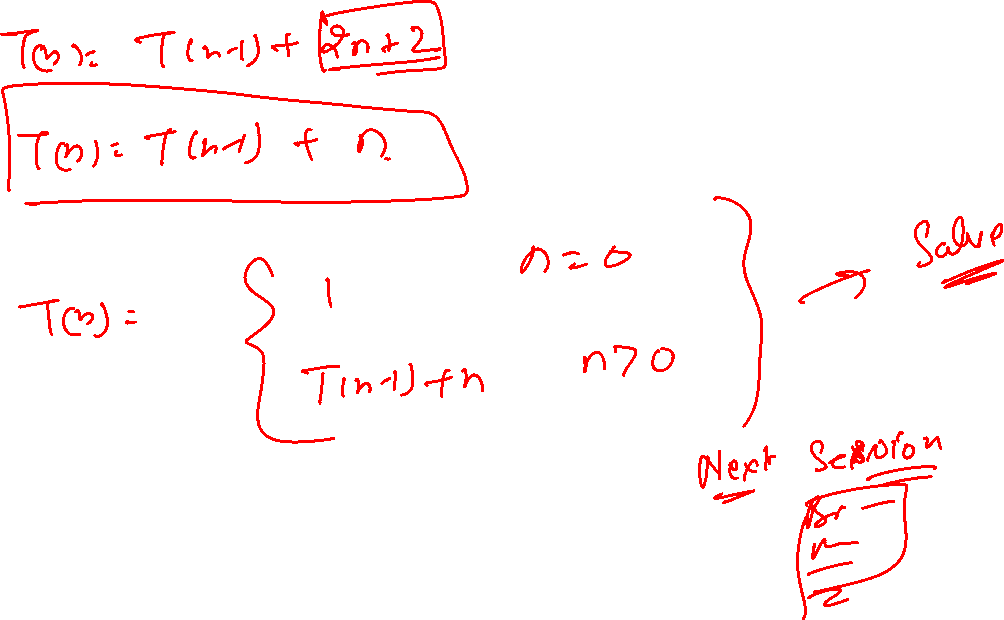 T(n) = T(n-1) + 2n+2
T(n) = T(n-1) + n
T(n) =
1 n=0
T(n-1)+n n>0
Solve
Next Session